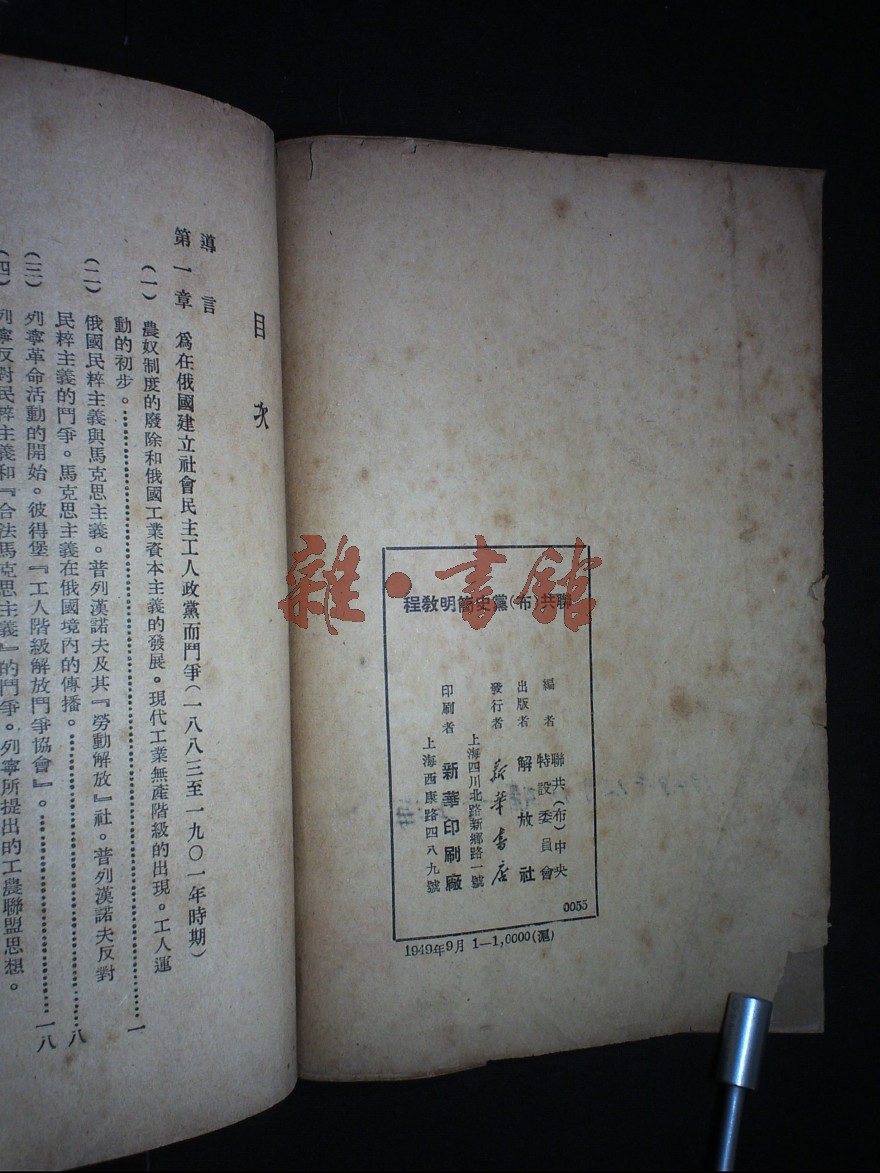 聯共(布)黨史簡明教程
編者 聯共(布)中央
特設委員會
出版者 解放社
發行者 新華書店
上海四川北路新鄉路一號
印刷者 新華印刷廠
上海西康路四八九號
0055
1949年9月 1—1,0000(滬)
雜·書館
目次
導言
第一章 爲在俄國建立社會民主工人政黨而鬥爭(一八八三至一九〇一年時期)
(一) 農奴制度的廢除和俄國工業資本主義的發展。現代工業無產階級的出現。工人運
動的初步。……一
(二) 俄國民粹主義與馬克思主義。普列漢諾夫及其『勞動解放』社。普列漢諾夫反對
民粹主義的鬥爭。馬克思主義在俄國境內的傳播。……八
(三) 列寧革命活動的開始。彼得堡『工人階級解放鬥爭協會』。……一八
(四) 列寧反對民粹主義和『合法馬克思主義』的鬥爭。列寧所提出的工農聯盟思想。